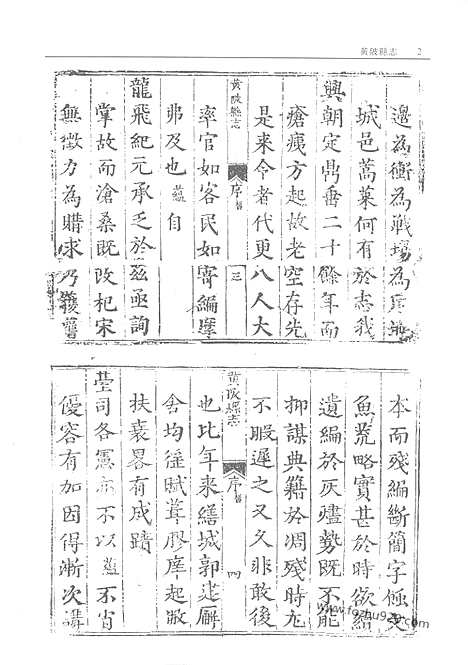 黃陂縣志 2
邊為衝為戰場為
城邑蒿萊何有於志我
興朝定鼎垂二十餘年而
瘡痍方起故老空存先
是來令者代更八人大
黃陂縣志 序 三
率官如客民如寄編摩
弗及也蘊自
龍飛紀元承乏於茲亟詢
掌故而滄桑既改杞宋
無徵力為購求乃獲舊
本而殘編斷簡字
魚荒略實甚於時欲
遺編於灰燼勢既不能
抑謀典籍於凋殘時尤
不暇遲之又久非敢後
黃陂縣志 序 四
也比年來繕城郭建廨
舍均徭賦葺膠庠起敝
扶衰畧有成蹟
臺司各憲亦不以蘊不肖
優容有加因得漸次講
www.fozhu920.com